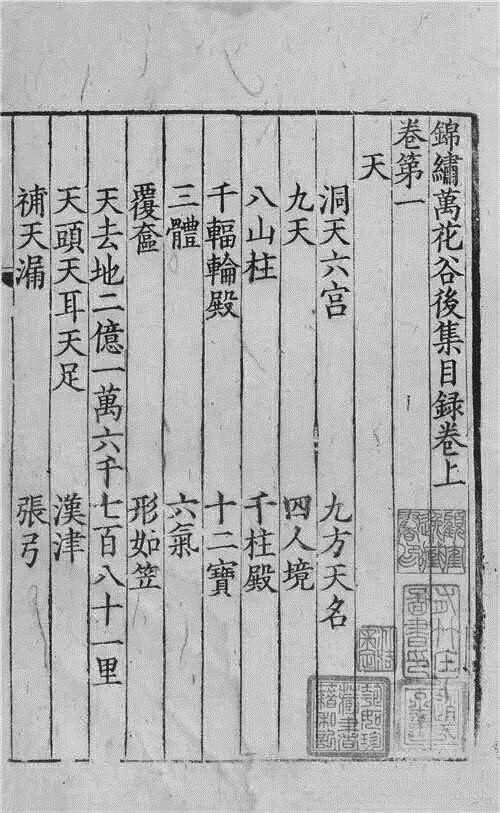 錦繡萬花谷後集目録卷上
卷第一
天
洞天六宫 九方天名
九天 四人境
八山柱 千柱殿
千輻輪殿 十二寶
三體 六氣
覆奩 形如笠
天去地二億一萬六千七百八十一里
天頭天耳天足 漢津
補天漏 張弓